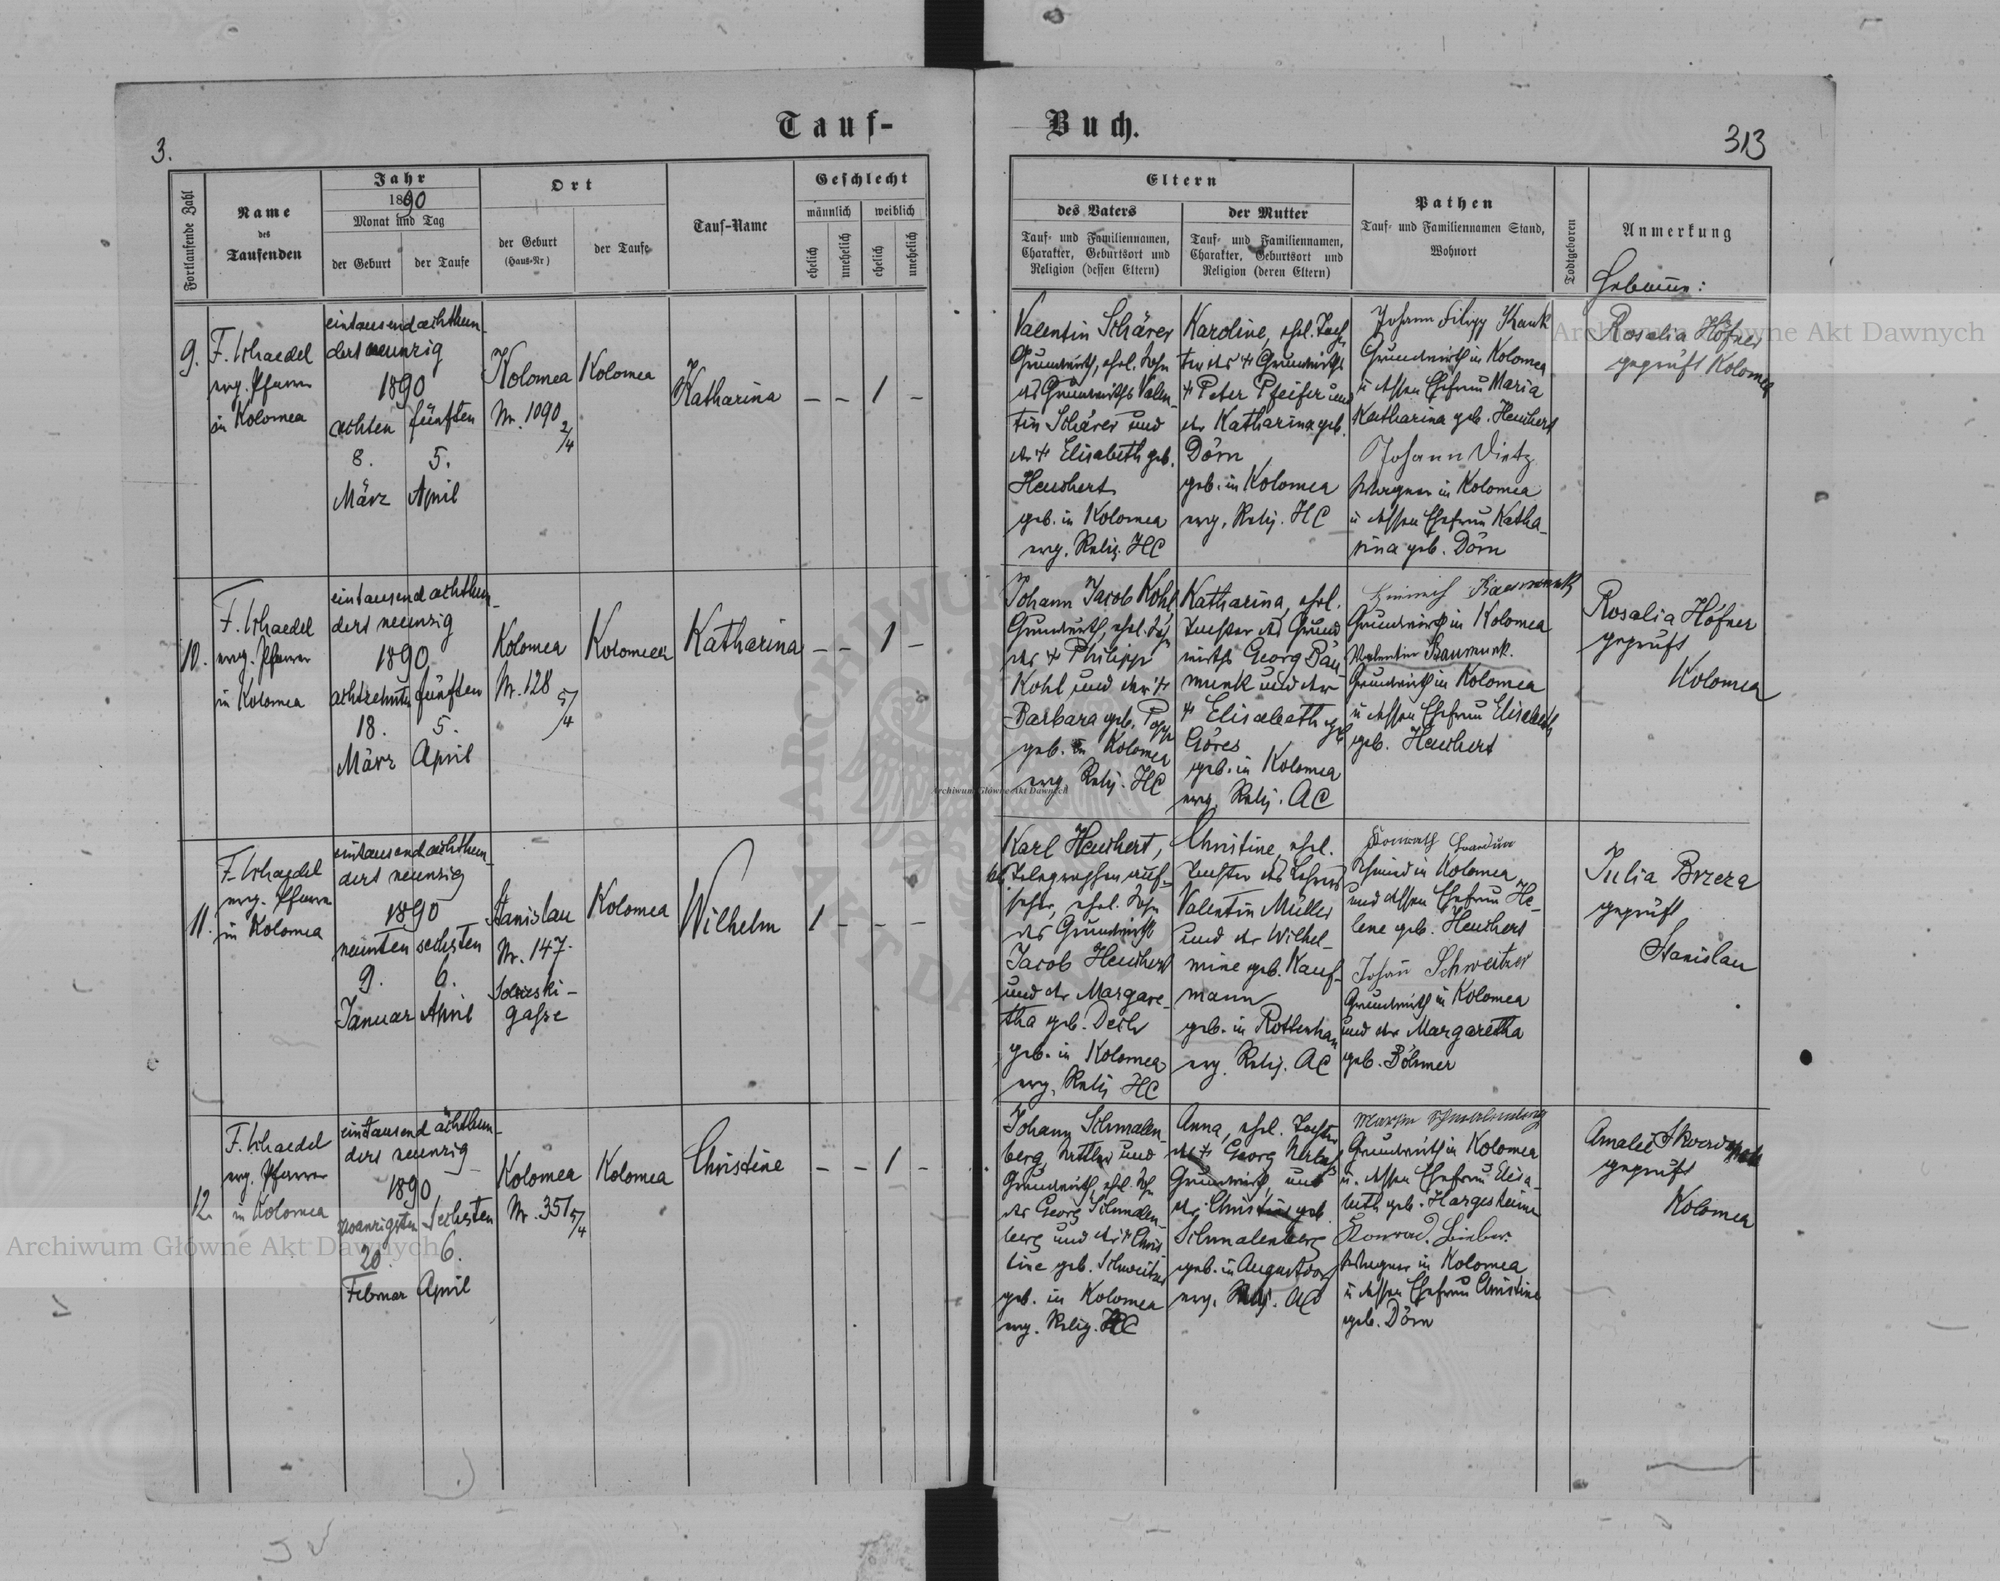 Tauf-
Buch.
3.
313
Fortlaufende Zahl
Name
des
Taufenden
Jahr
1890
Monat und Tag
der Geburt
der Taufe
Ort
der Geburt
(Haus-Nr)
der Taufe
Tauf-Name
Geschlecht
männlich
weiblich
ehelich
unehelich
ehelich
unehelich
Eltern
des Vaters
Tauf- und Familiennamen,
Charakter, Geburtsort und
Religion (dessen Eltern)
der Mutter
Tauf- und Familiennamen,
Charakter, Geburtsort und
Religion (deren Eltern)
Pathen
Tauf- und Familiennamen Stand,
Wohnort
Todtgeboren
Anmerkung
Hebamme:
9.
F. Schaedel
evg. Pfarrer
in Kolomea
eintausendachthun-
dert neunzig
1890
achten
8.
März
fünften
5.
April
Kolomea
Nr. 1090 2/4
Kolomea
Katharina
– – 1 –
Valentin Schärer
Grundwirth, ehel. Sohn
des Grundwirths Valen-
tin Schärer und
der + Elisabeth geb.
Heuchert
geb. in Kolomea
evg. Relig. HC
Karoline, ehel. Toch-
ter des + Grundwirths
+ Peter Pfeifer und
der Katharina geb.
Dörn
geb. in Kolomea
evg. Relig. HC
Johann Filipp
Grundwirth in Kolomea
u dessen Ehefrau Maria
Katharina geb. Heuchert
Johann Dietz
Wagner in Kolomea
u dessen Ehefrau Katha-
rina geb. Dörn
Rosalia Höfner
geprüft Kolomea
10.
F. Schaedel
evg. Pfarrer
in Kolomea
eintausend achthun-
dert neunzig
1890
achtzehnten
18.
März
fünften
5.
April
Kolomea
Nr. 128 5/4
Kolomea
Katharina
– – 1 –
Johann Jacob Kohl
Grundwirth, ehel. Sohn
des + Philipp
Kohl und der +
Barbara geb. Popp
geb. in Kolomea
evg Relig. HC
Katharina, ehel.
Tochter des Grund
wirths Georg Bau-
munk und der
+ Elisabeth geb
Göres
geb. in Kolomea
evg. Relig. AC
Heinrich Baumunk
Grundwirth in Kolomea
Valentin Baumunk.
Grundwirth in Kolomea
u dessen Ehefrau Elisabeth
geb. Heuchert
Rosalia Höfner
geprüft
Kolomea
11.
F. Schaedel
evg. Pfarrer
in Kolomea
eintausend achthun-
dert neunzig
1890
neunten
9.
Januar
sechsten
6.
April
Stanislau
Nr. 147.
Sobieski-
gasse
Kolomea
Wilhelm
1 – – –
Karl Heuchert,
Telegraphenauf-
seher, ehel. Sohn
des Grundwirths
Jacob Heuchert
und der Margare-
tha geb. Deckr
geb. in Kolomea
evg. Relig HC
Christine, ehel.
Tochter des Lehrers
Valentin Müller
und der Wilhel-
mine geb. Kauf-
mann
geb. in Rottenhan
evg. Relig. AC
Schmied in Kolomea
und dessen Ehefrau He-
lene geb. Heuchert
Johann Schweitzer
Grundwirth in Kolomea
und der Margaretha
geb. Böhmer
Julia Brzeza
geprüft
Stanislau
12.
F. Schaedel
evg. Pfarrer
in Kolomea
eintausend achthun-
dert neunzig
1890
zwanzigsten
20.
Februar
Sechsten
6.
April
Kolomea
Nr. 351 5/4
Kolomea
Christine
– – 1 –
Johann Schmalen-
berg, und
Grundwirth, ehel. Sohn
des Georg Schmalen-
berg und der + Chris-
tine geb. Schweitzer
geb. in Kolomea
evg. Relig. HC
Anna, ehel. Tochter
des + Georg
Grundwirth, und
der Christine geb.
Schmalenberg
geb. in Augustdorf
evg. Relig. AC
Schmalenberg
Grundwirth in Kolomea
u. dessen Ehefrau Elisa-
beth geb. Hargesheimer
Konrad Bieber.
Wagner in Kolomea
u dessen Ehefrau Christine
geb. Dörn
Amalie
geprüft
Kolomea
Archiwum Główne Akt Dawnych
Archiwum Główne Akt Dawnych
Archiwum Główne Akt Dawnych